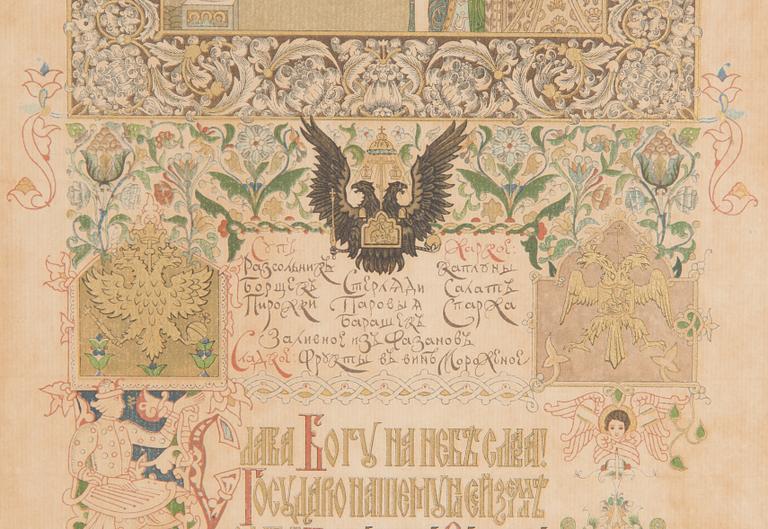 Супъ Жаркое:
Разсольникъ Каплуны
Борщекъ Стерляди Салатъ
Пирожки Паровыя Спаржа
Барашекъ
Заливное изъ Фазановъ
Сладкое Фрукты въ винѣ Мороженое
Слава Богу на небѣ слава!
Государю нашему на сей землѣ